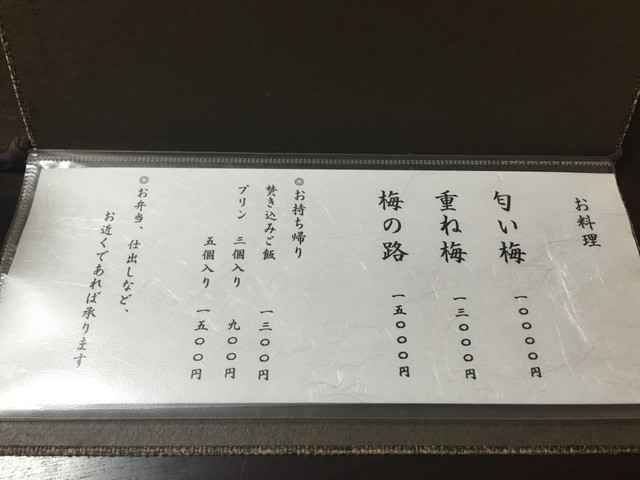 お料理
匂い梅 一〇〇〇〇円
重ね梅 一三〇〇〇円
梅の路 一五〇〇〇円
◎お持ち帰り
焚き込みご飯 一三〇〇円
プリン 三個入り 九〇〇円
五個入り 一五〇〇円
◎お弁当、仕出しなど、
お近くであれば承ります